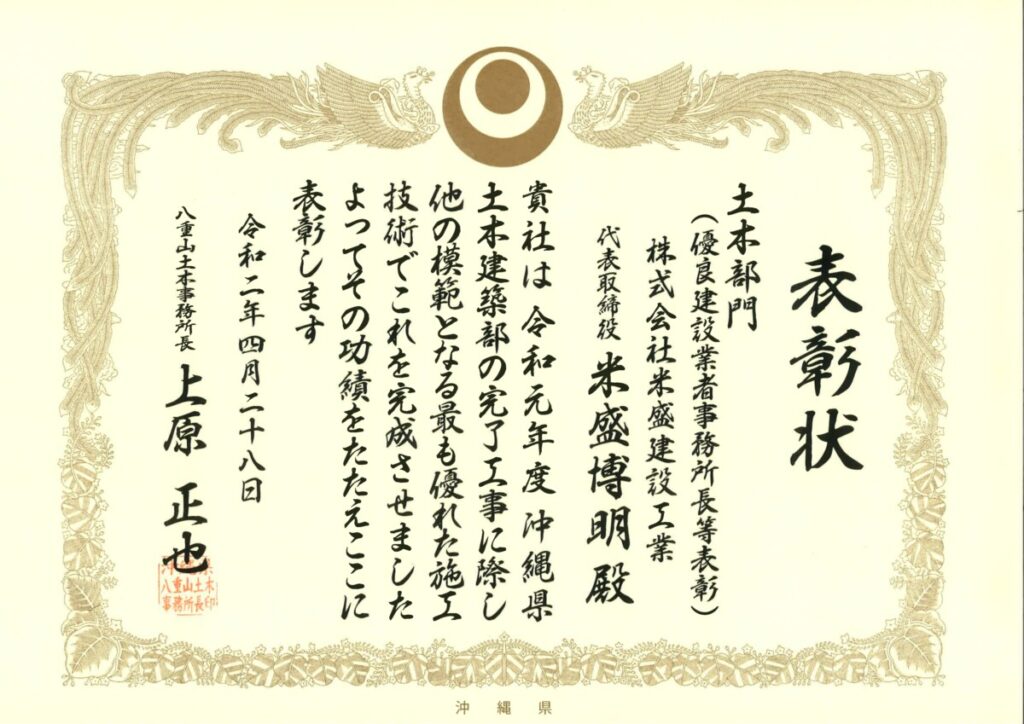 表彰状
土木部門
(優良建設業者事務所長等表彰)
株式会社米盛建設工業
代表取締役 米盛博明 殿
貴社は令和元年度沖縄県
土木建築部の完了工事に際し
他の模範となる最も優れた施工
技術でこれを完成させました
よってその功績をたたえここに
表彰します
令和二年四月二十八日
八重山土木事務所長 上原 正也
沖縄県